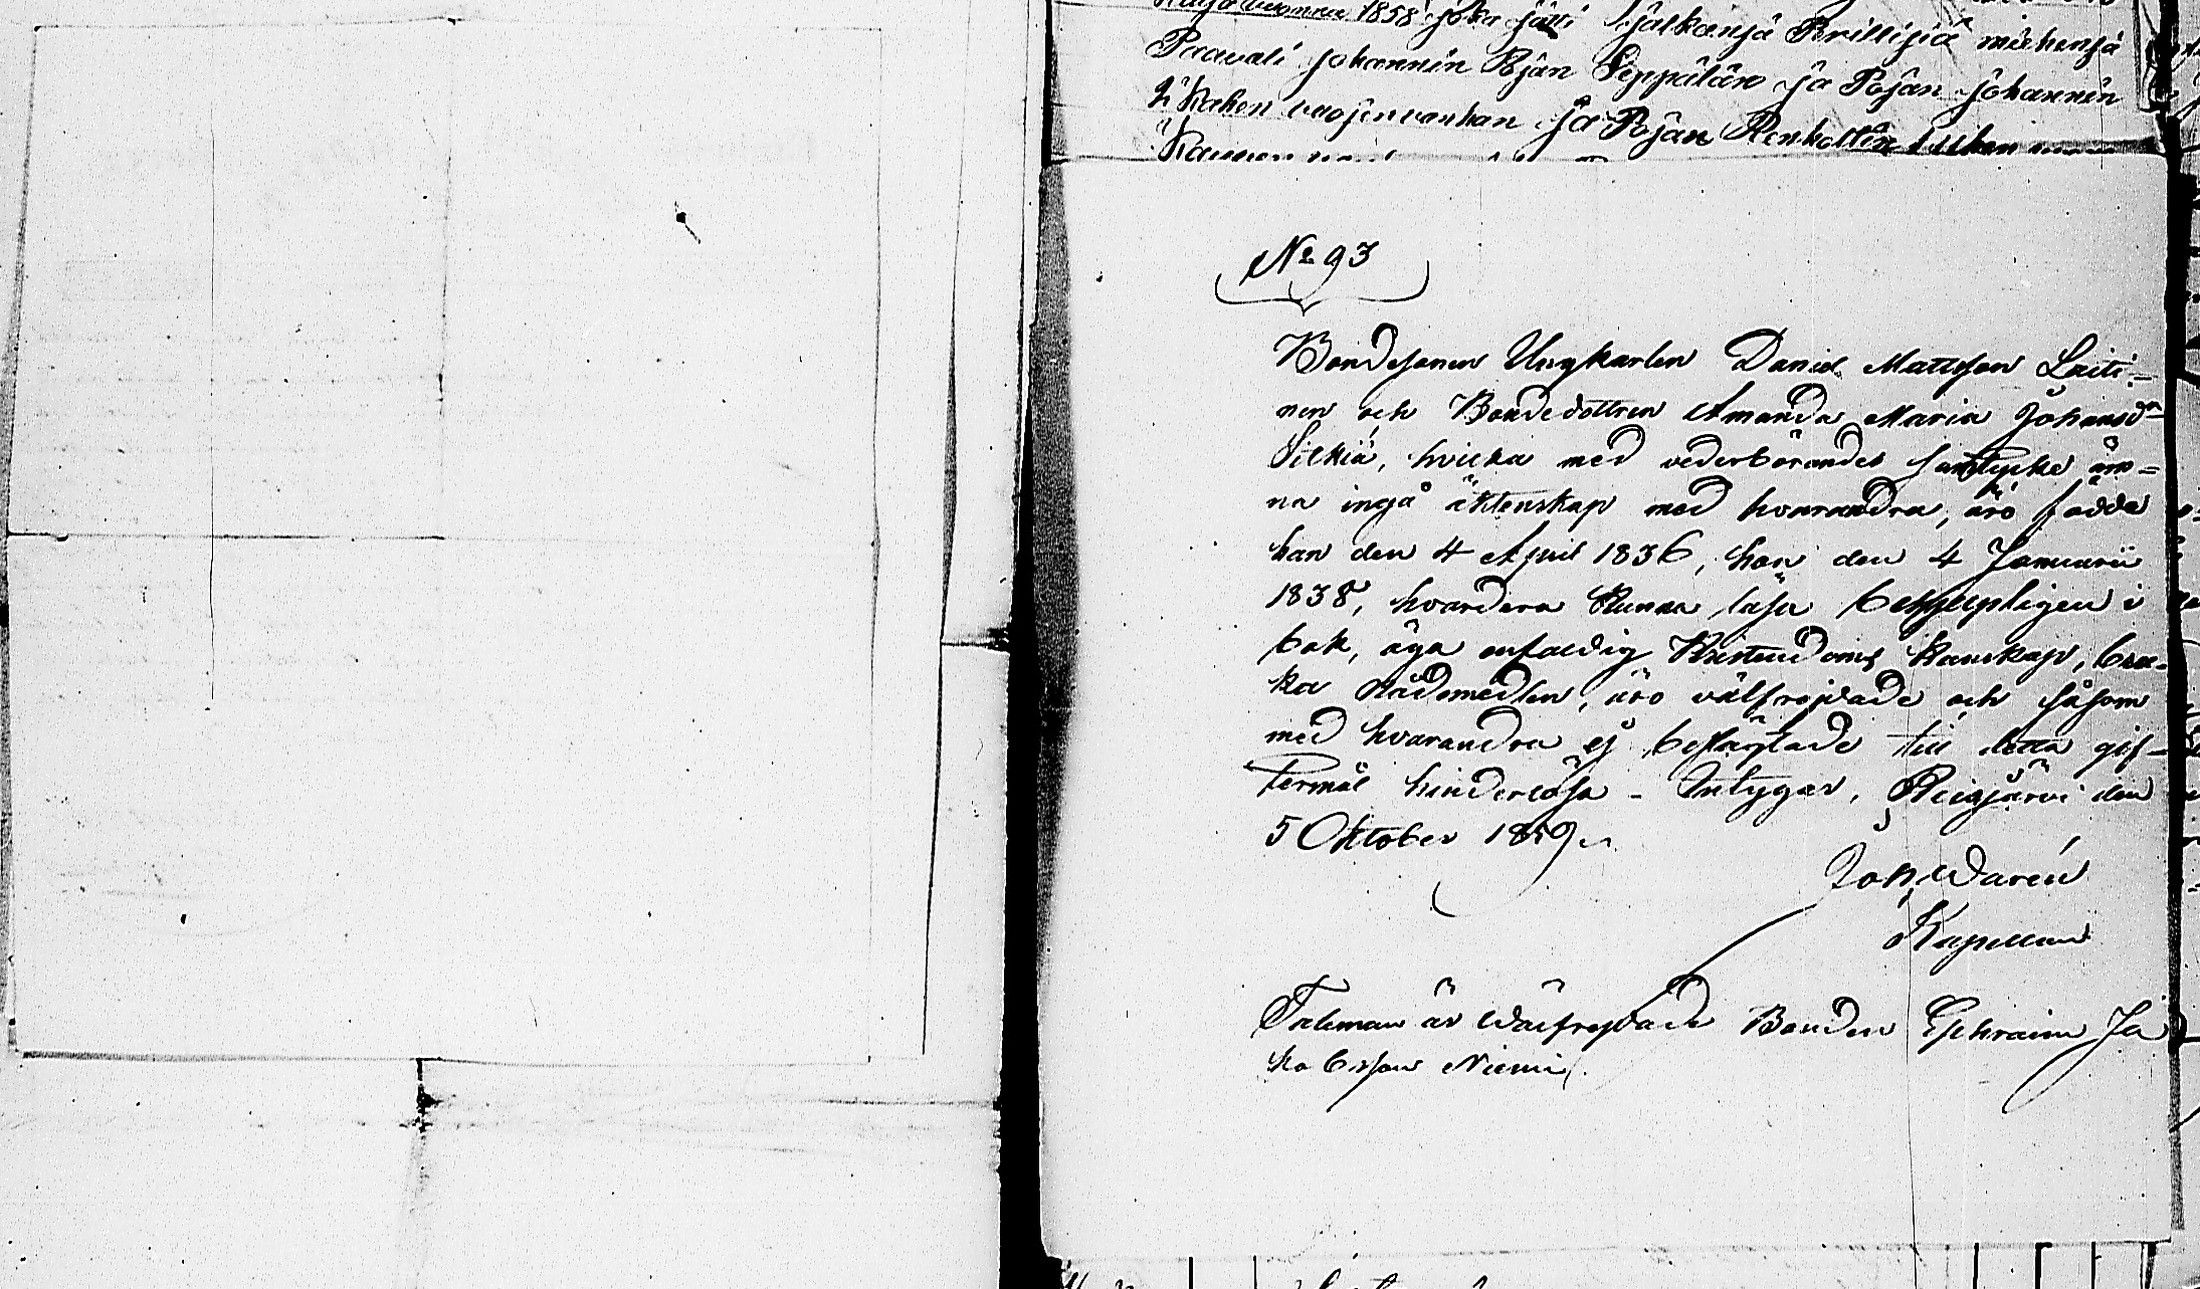 1858 joka jätti jälkeensä Perillisiä miehensä
Paavali Johannin Pojan Seppälän ja Pojan Johannin
2 Kahen vuojenvanhan ja Pojan Renholttin
No 93
Bondesonen Ungkarlen Daniel Mattsson Laiti-
nen och Bondedottren Amanda Maria Johansdr
Silkiä, hvilka med vederbörandes samtycke äm=
na ingå äktenskap med hvarandra, äro födde
han den 4 April 1836, hon den 4 Januarii
1838, hvardera kunna läsa behjelpligen i
bok, äga enfaldig Kristendoms kunskap, bru-
ka Nådemedlen, äro välfrejdade och såsom
med hvarandra ej beslägtade till detta gif-
termål hinderlösa - Intygar, Reisjärvi den
5 Oktober 1859.
Joh. Warén
Kapellan
Taleman är välfrejdade Bonden Ephraim Ja
kobsson Niemi.